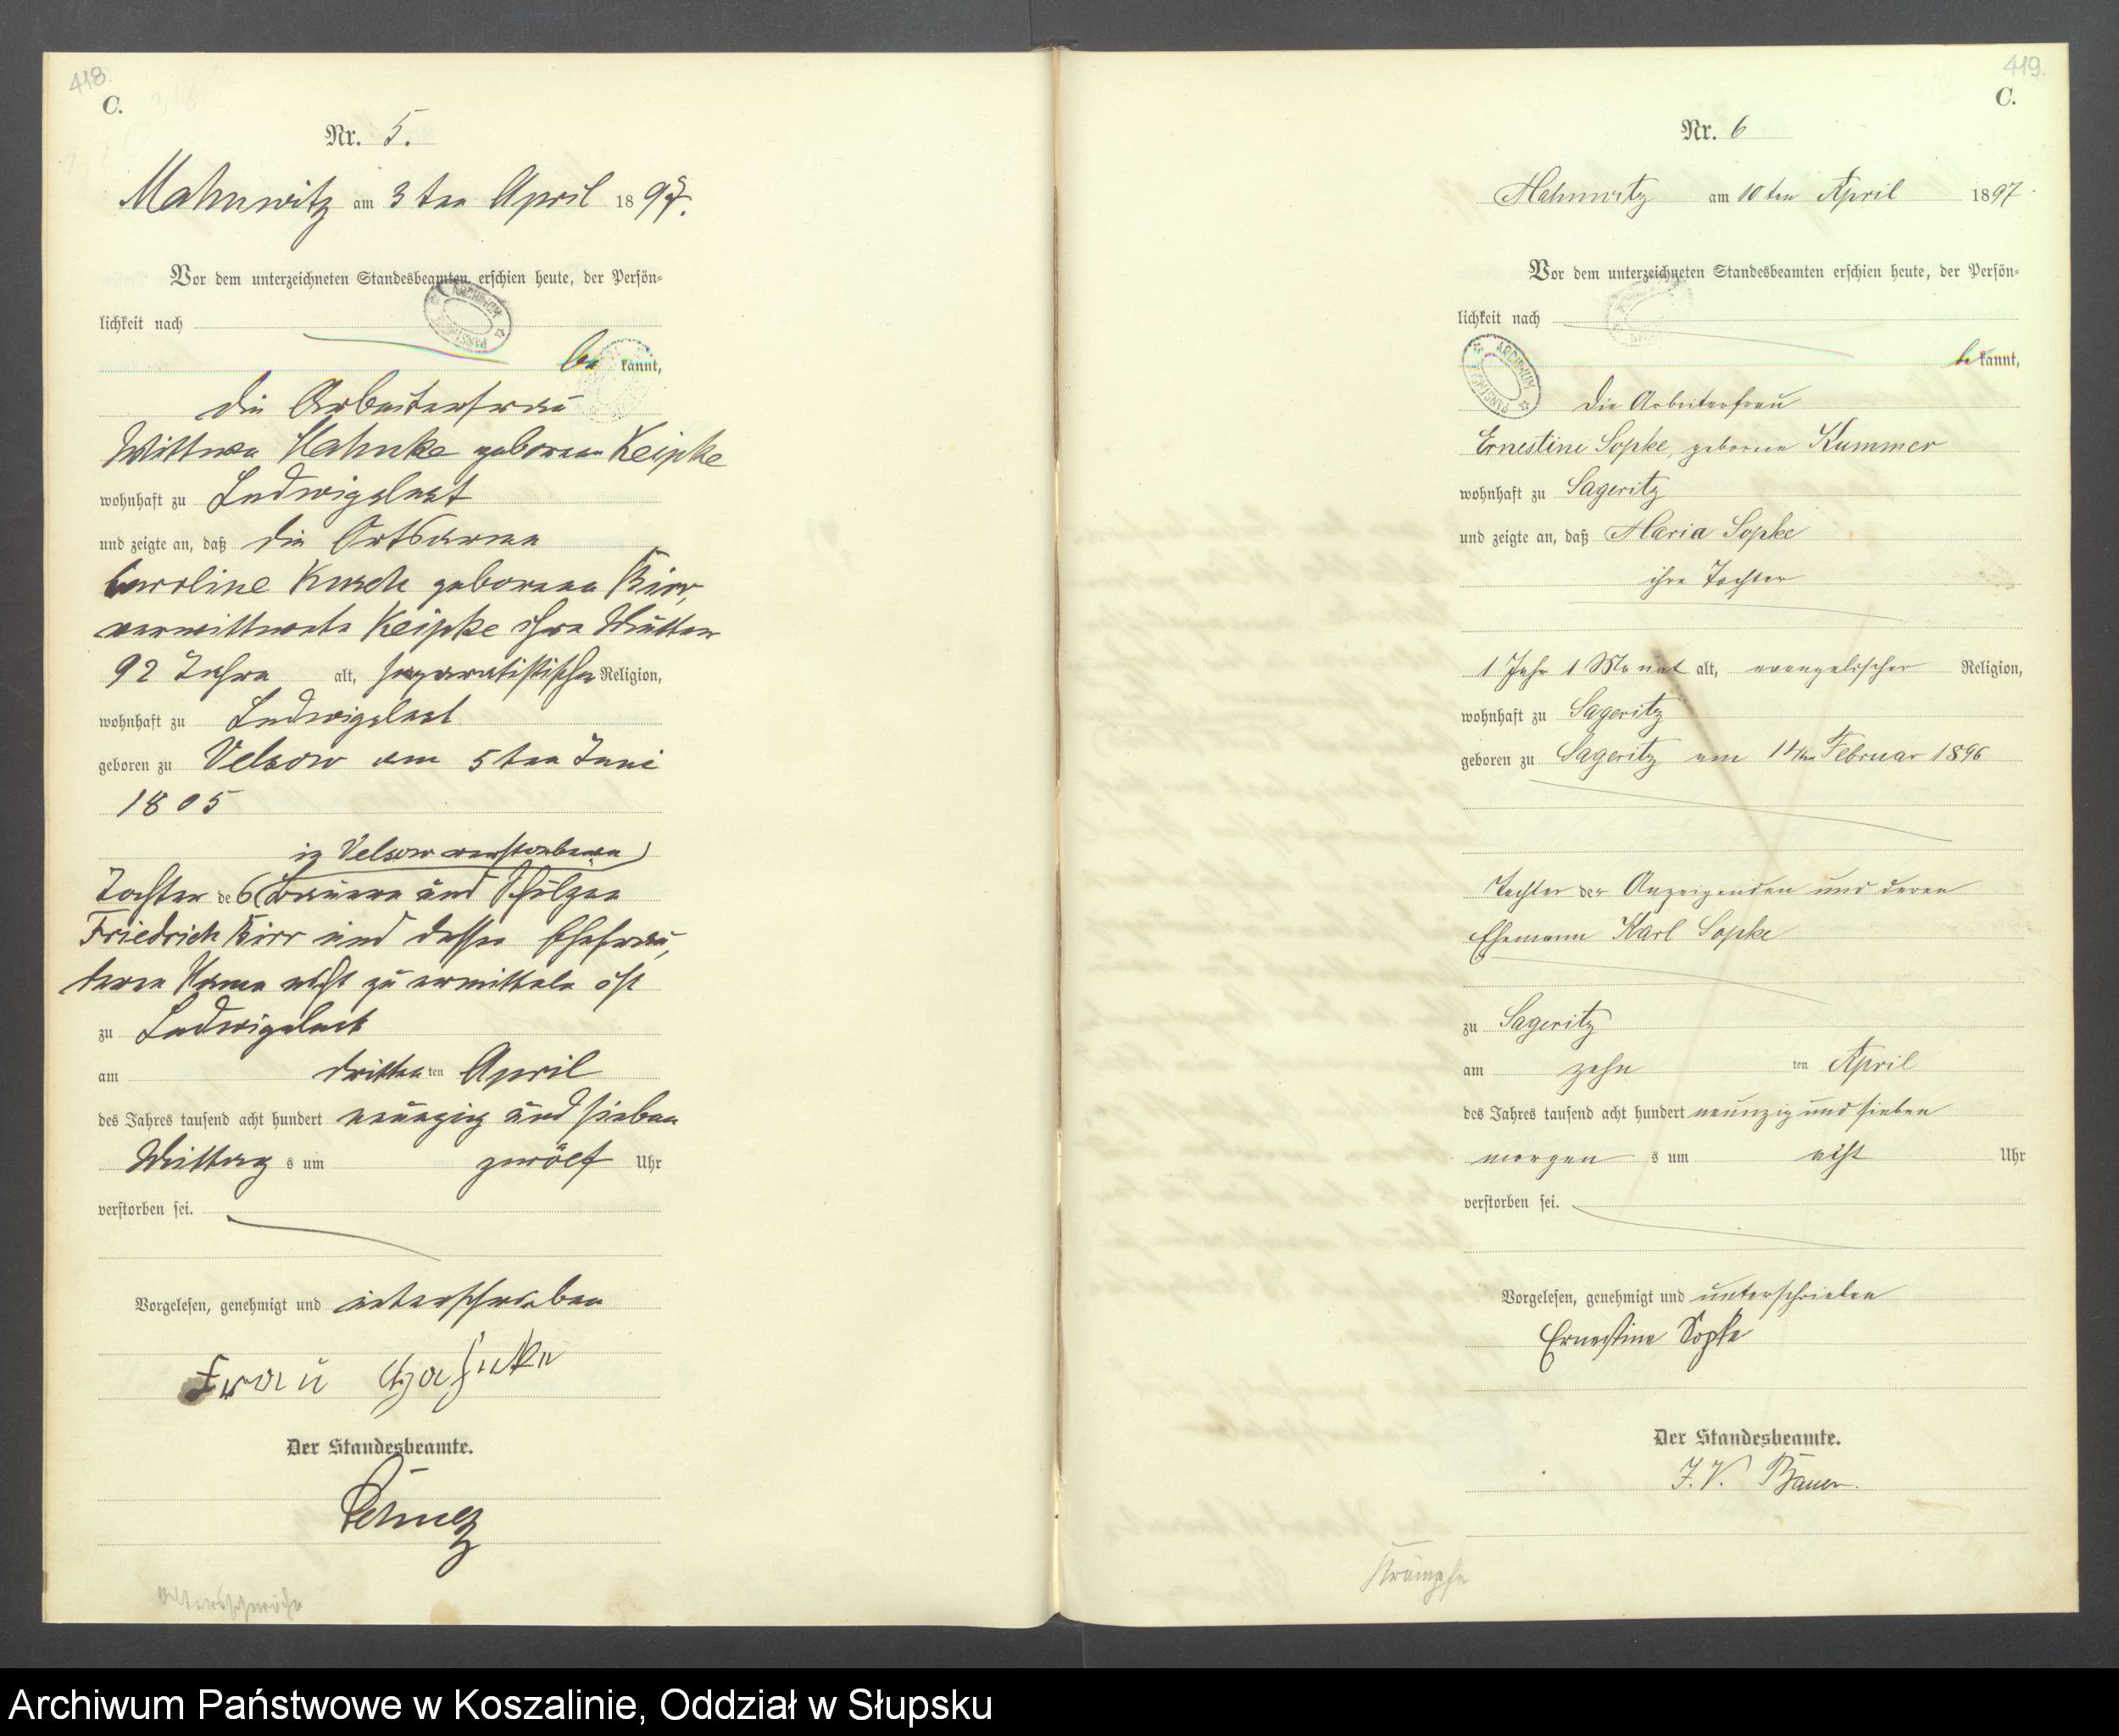 418.
C.
Nr. 5.
Mahnwitz am 3ten April 1897.
Vor dem unterzeichneten Standesbeamten erschien heute, der Persön-
lichkeit nach
bekannt,
die Arbeiterfrau
Wittwe Hahnke geborene Keipke
wohnhaft zu Ludwigslust
und zeigte an, daß die Ortsarme
Caroline Kusch geborene Birr,
verwittwete Keipke ihre Mutter
92 Jahre alt, separatistischer Religion,
wohnhaft zu Ludwigslust
geboren zu Velsow am 5ten Juni
1805
in Velsow verstorbenen
Tochter des Bauern und Schulzen
Friedrich Birr und dessen Ehefrau,
deren Name nicht zu ermitteln ist
zu Ludwigslust
am dritten ten April
des Jahres tausend acht hundert neunzig und sieben
Mittag s um zwölf Uhr
verstorben sei.
Vorgelesen, genehmigt und unterschrieben
Frau Hahnke
Der Standesbeamte.
Altersschwäche
419.
C.
Nr. 6
Mahnwitz am 10ten April 1897.
Vor dem unterzeichneten Standesbeamten erschien heute, der Persön-
lichkeit nach
bekannt,
die Arbeiterfrau
Ernestine Sopke, geborne Kummer
wohnhaft zu Sageritz
und zeigte an, daß Maria Sopke
ihre Tochter
1 Jahr 1 Monat alt, evangelischer Religion,
wohnhaft zu Sageritz
geboren zu Sageritz am Februar 1896
Tochter der Anzeigenden und deren
Ehemann Karl Sopke
zu Sageritz
am zehn ten April
des Jahres tausend acht hundert neunzig und sieben
morgen s um acht Uhr
verstorben sei.
Vorgelesen, genehmigt und unterschrieben
Ernestine Sopke
Der Standesbeamte.
J. V. Bauer.
Krämpfe
Archiwum Państwowe w Koszalinie, Oddział w Słupsku